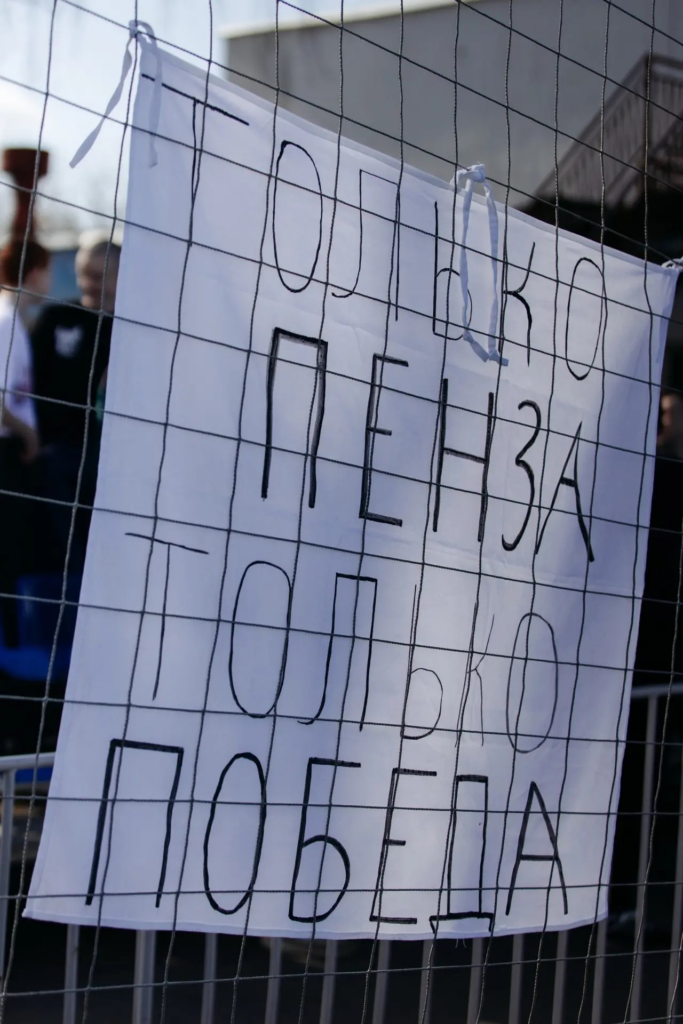 ТОЛЬКО
ПЕНЗА
ТОЛЬКО
ПОБЕДА